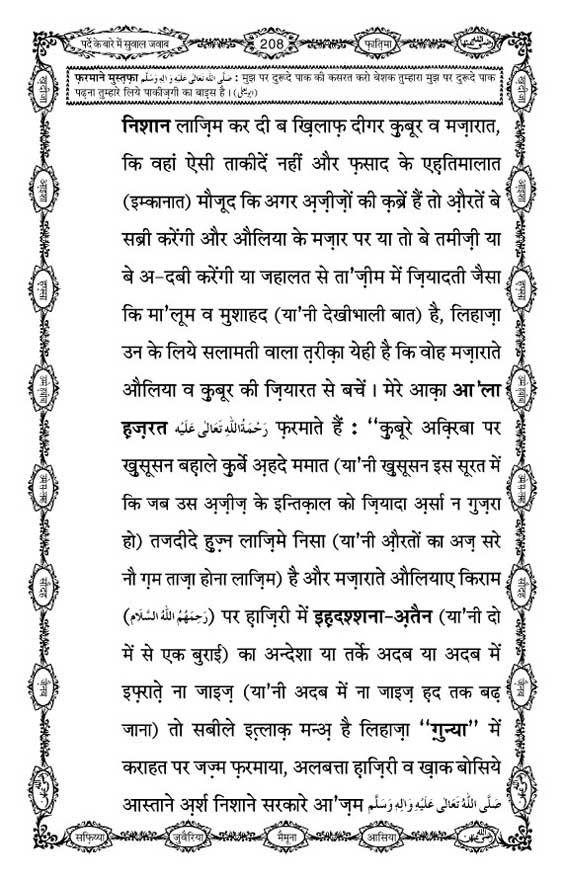 पर्दे के बारे में सुवाल जवाब
208
फ़ातिमा
फ़रमाने मुस्तफ़ा صَلَّى اللهُ تَعَالٰى عَلَيْهِ وَاٰلِهٖ وَسَلَّم : मुझ पर दुरूदे पाक की कसरत करो बेशक तुम्हारा मुझ पर दुरूदे पाक
पढ़ना तुम्हारे लिये पाकीज़गी का बाइस है ।
निशान लाज़िम कर दी ब ख़िलाफ़ दीगर क़ुबूर व मज़ारात,
कि वहां ऐसी ताकीदें नहीं और फ़साद के एह़तिमालात
(इम्कानात) मौजूद कि अगर अ़ज़ीज़ों की क़ब्रें हैं तो औ़रतें बे
सब्री करेंगी और औलिया के मज़ार पर या तो बे तमीज़ी या
बे अ-दबी करेंगी या जहालत से ता'ज़ीम में ज़ियादती जैसा
कि मा'लूम व मुशाहद (या'नी देखीभाली बात) है, लिहाज़ा
उन के लिये सलामती वाला त़रीक़ा येही है कि वोह मज़ाराते
औलिया व क़ुबूर की ज़ियारत से बचें । मेरे आक़ा आ'ला
ह़ज़रत رَحْمَةُ اللهِ تَعَالٰى عَلَيْهِ फ़रमाते हैं : ‘‘क़ुबूरे अक़्रिबा पर
ख़ुसूसन बहाले क़ुर्बे अ़हदे ममात (या'नी ख़ुसूसन इस सूरत में
कि जब उस अ़ज़ीज़ के इन्तिक़ाल को ज़ियादा अ़र्सा न गुज़रा
हो) तजदीदे ह़ुज़्न लाज़िमे निसा (या'नी औ़रतों का अज़ सरे
नौ ग़म ताज़ा होना लाज़िम) है और मज़ाराते औलियाए किराम
(رَحِمَهُمُ اللهُ السَّلَام) पर ह़ाज़िरी में इह़दश्शना-अ़तैन (या'नी दो
में से एक बुराई) का अन्देशा या तर्के अदब या अदब में
इफ़्राते़ ना जाइज़ (या'नी अदब में ना जाइज़ ह़द तक बढ़
जाना) तो सबीले इत़्लाक़ मन्अ़ है लिहाज़ा ‘‘ग़ुन्या’’ में
कराहत पर जज़्म फ़रमाया, अलबत्ता ह़ाज़िरी व ख़ाक बोसिये
आस्ताने अ़र्श निशाने सरकारे आ'ज़म صَلَّى اللهُ تَعَالٰى عَلَيْهِ وَاٰلِهٖ وَسَلَّم
सफ़िय्या
जुवैरिया
मैमूना
आसिया